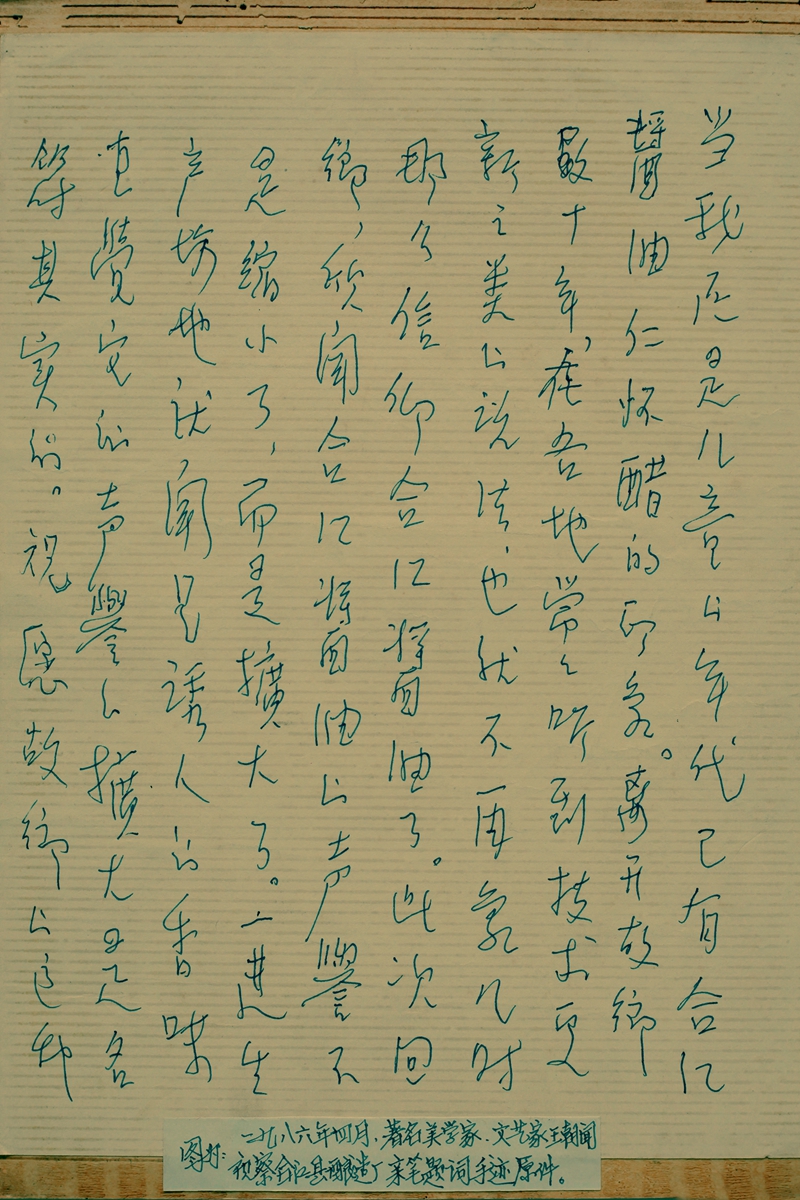 当我还是儿童的年代已有合江
醬油仁怀醋的印象。离开故鄉
數十年,在各地常々听到技术更
新之类的说法,也就不再象儿时
那么信仰合江醬油了。此次回
鄉,欣闻合江醬油的声譽不
是缩小了,而是擴大了。一进生
产场地就,闻见诱人的香味
直覺它的声譽的擴大是名
符其实的。祝愿故鄉的这种
图片:一九八六年四月,著名美学家、文艺家王朝闻
视察合江县酿造厂亲笔题词手迹原件。